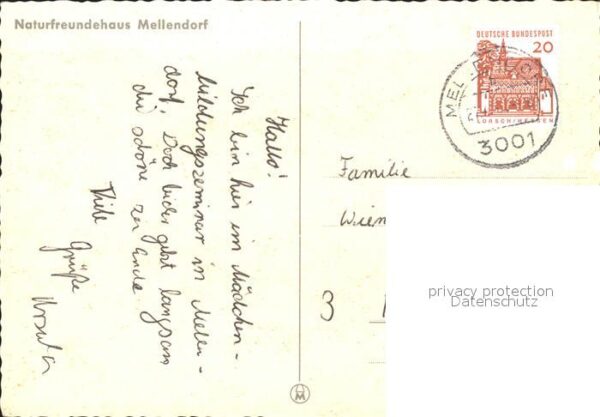 Naturfreundehaus Mellendorf
Hallo!
Ich bin hier im Mädchen-
bildungsseminar in Mellen-
dorf. Doch leider geht langsam
die schöne Zeit zu Ende
Viele
Grüße
Ursula
DEUTSCHE BUNDESPOST
20
LORSCH/HESSEN
MEL
3001
Familie
Wien
3
privacy protection
Datenschutz